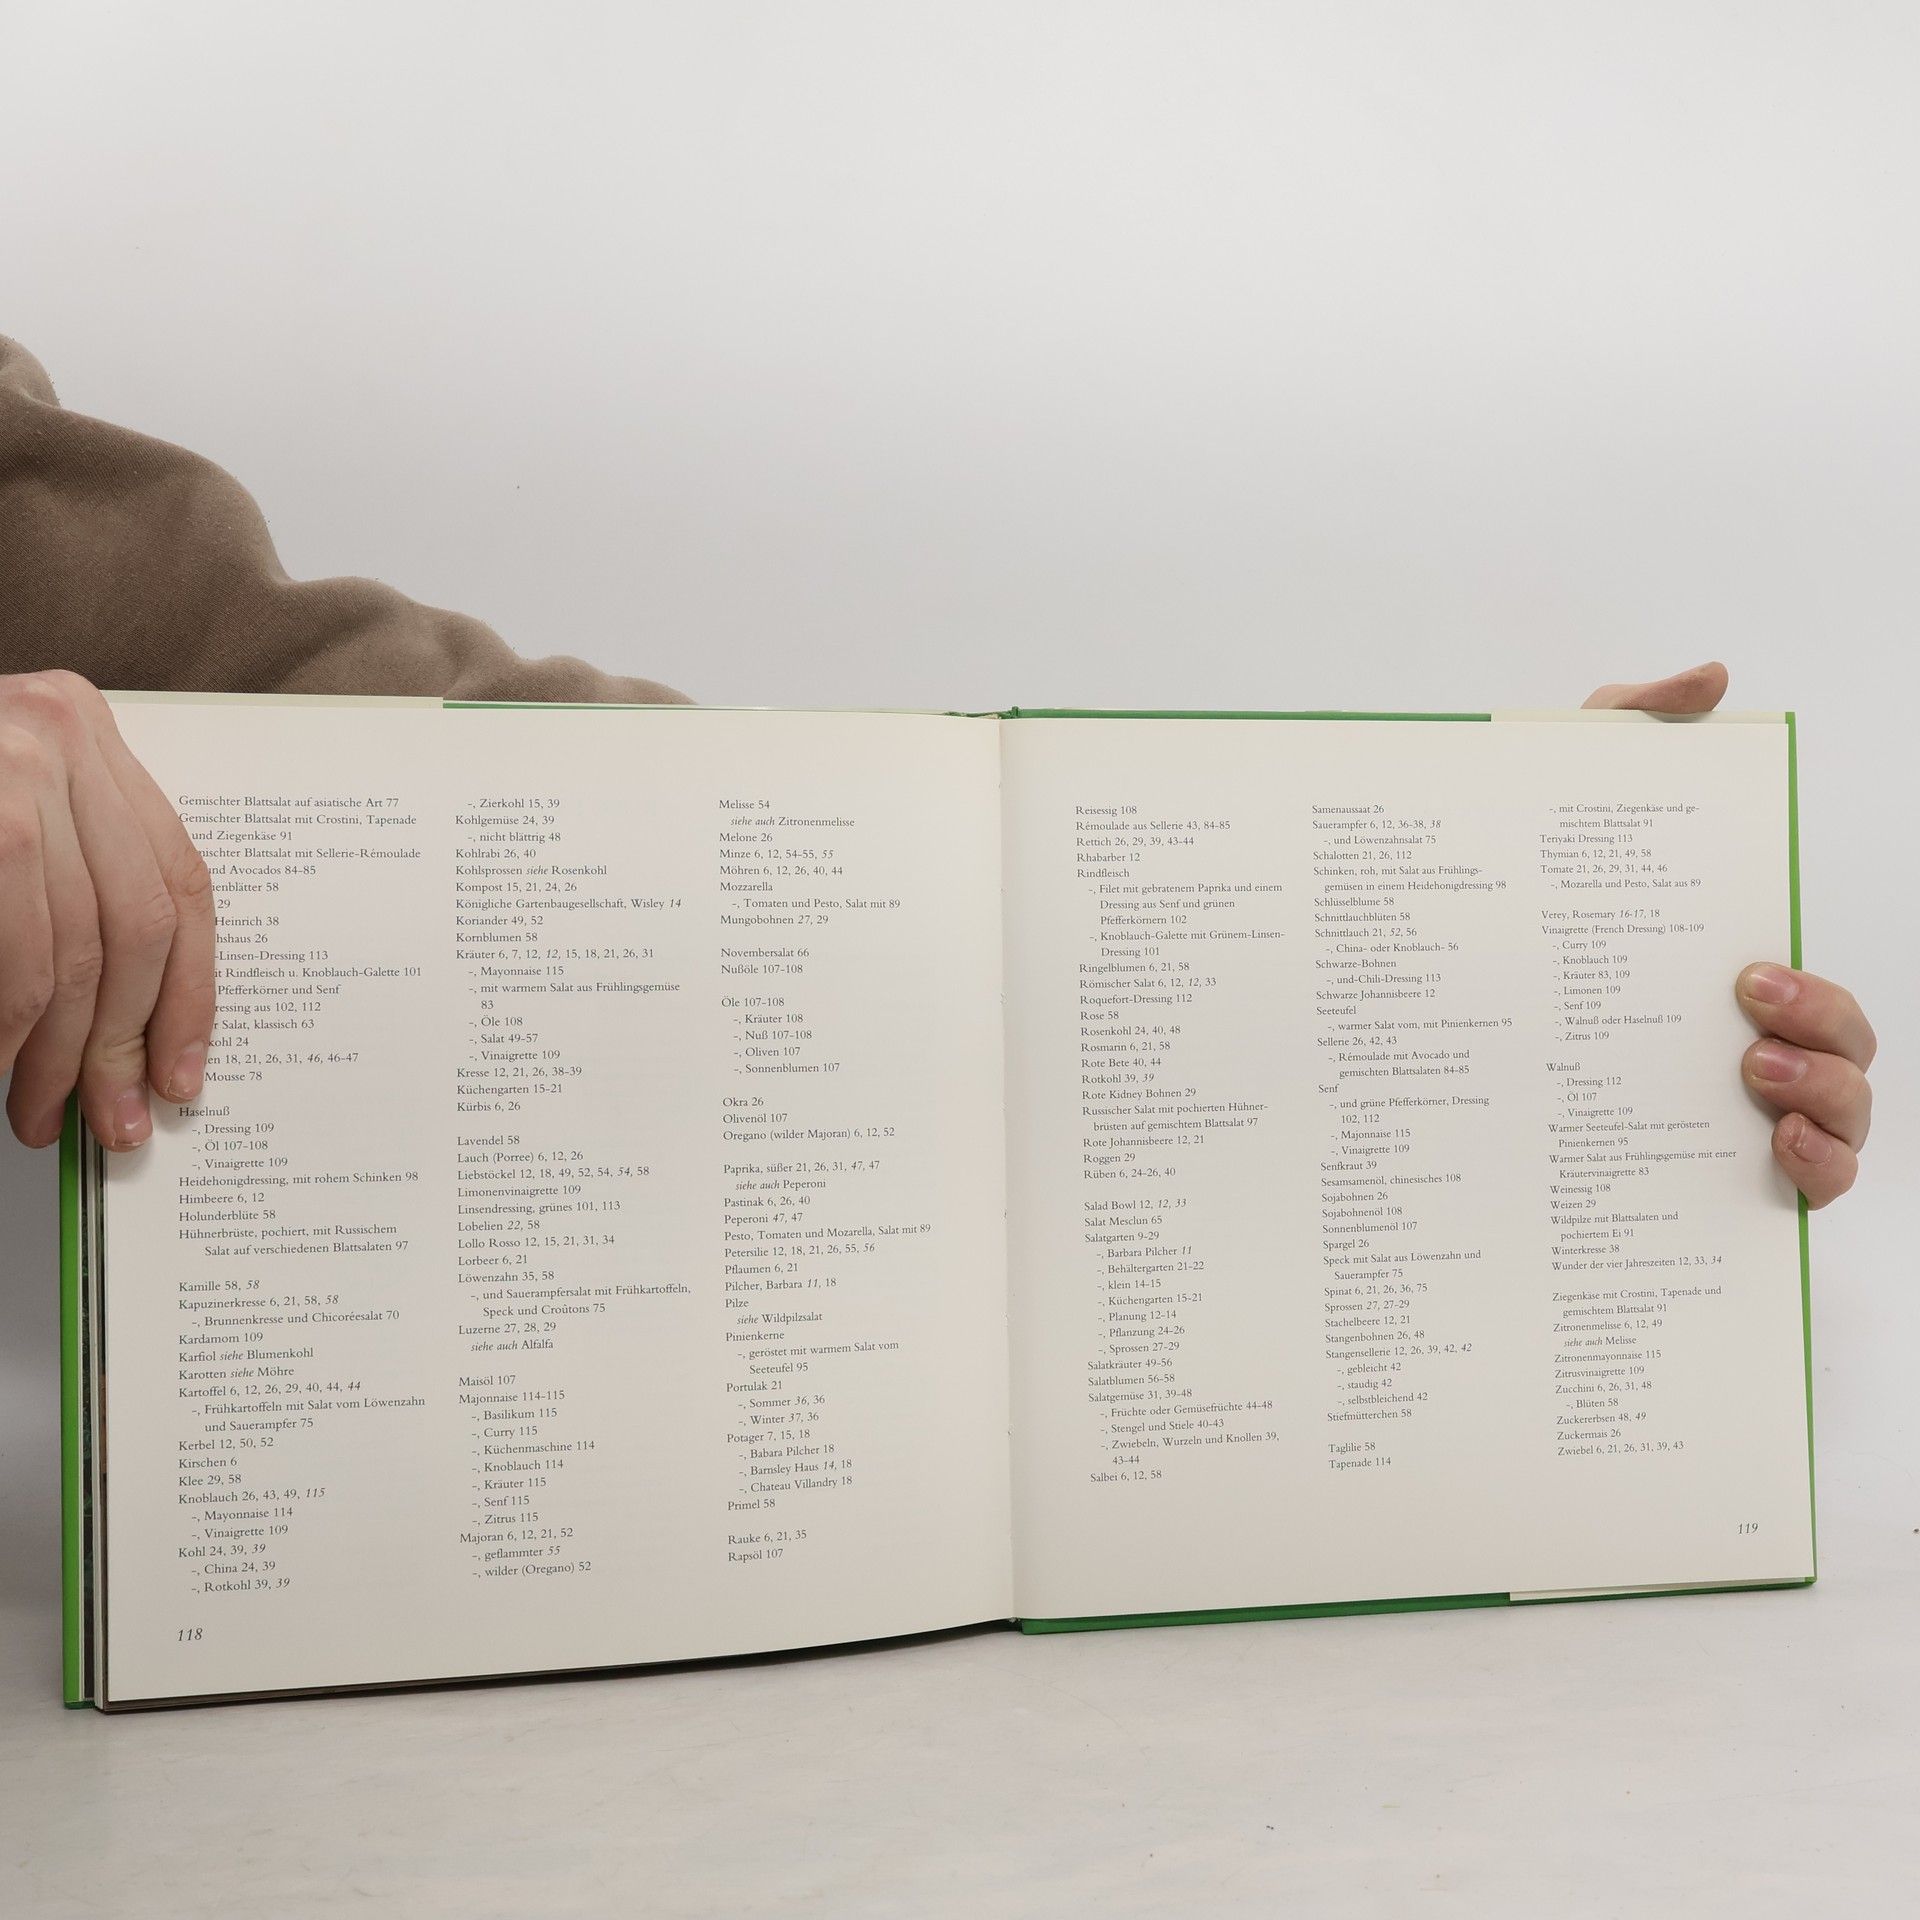 Gemischter Blattsalat auf asiatische Art 77
Gemischter Blattsalat mit Crostini, Tapenade
und Ziegenkäse 91
mischter Blattsalat mit Sellerie-Rémoulade
und Avocados 84-85
ienblätter 58
29
Heinrich 38
hshaus 26
-Linsen-Dressing 113
it Rindfleisch u. Knoblauch-Galette 101
Pfefferkörner und Senf
ressing aus 102, 112
r Salat, klassisch 63
kohl 24
en 18, 21, 26, 31, 46, 46-47
Mousse 78
Haselnuß
-, Dressing 109
-, Öl 107-108
-, Vinaigrette 109
Heidehonigdressing, mit rohem Schinken 98
Himbeere 6, 12
Holunderblüte 58
Hühnerbrüste, pochiert, mit Russischem
Salat auf verschiedenen Blattsalaten 97
Kamille 58, 58
Kapuzinerkresse 6, 21, 58, 58
-, Brunnenkresse und Chicoréesalat 70
Kardamom 109
Karfiol siehe Blumenkohl
Karotten siehe Möhre
Kartoffel 6, 12, 26, 29, 40, 44, 44
-, Frühkartoffeln mit Salat vom Löwenzahn
und Sauerampfer 75
Kerbel 12, 50, 52
Kirschen 6
Klee 29, 58
Knoblauch 26, 43, 49, 115
-, Mayonnaise 114
-, Vinaigrette 109
Kohl 24, 39, 39
-, China 24, 39
-, Rotkohl 39, 39
118
-, Zierkohl 15, 39
Kohlgemüse 24, 39
-, nicht blättrig 48
Kohlrabi 26, 40
Kohlsprossen siehe Rosenkohl
Kompost 15, 21, 24, 26
Königliche Gartenbaugesellschaft, Wisley 14
Koriander 49, 52
Kornblumen 58
Kräuter 6, 7, 12, 12, 15, 18, 21, 26, 31
-, Mayonnaise 115
-, mit warmem Salat aus Frühlingsgemüse
83
-, Öle 108
-, Salat 49-57
-, Vinaigrette 109
Kresse 12, 21, 26, 38-39
Küchengarten 15-21
Kürbis 6, 26
Lavendel 58
Lauch (Porree) 6, 12, 26
Liebstöckel 12, 18, 49, 52, 54, 54, 58
Limonenvinaigrette 109
Linsendressing, grünes 101, 113
Lobelien 22, 58
Lollo Rosso 12, 15, 21, 31, 34
Lorbeer 6, 21
Löwenzahn 35, 58
-, und Sauerampfersalat mit Frühkartoffeln,
Speck und Croûtons 75
Luzerne 27, 28, 29
siehe auch Alfalfa
Maisöl 107
Majonnaise 114-115
-, Basilikum 115
-, Curry 115
-, Küchenmaschine 114
-, Knoblauch 114
-, Kräuter 115
-, Senf 115
-, Zitrus 115
Majoran 6, 12, 21, 52
-, geflammter 55
-, wilder (Oregano) 52
Melisse 54
siehe auch Zitronenmelisse
Melone 26
Minze 6, 12, 54-55, 55
Möhren 6, 12, 26, 40, 44
Mozzarella
-, Tomaten und Pesto, Salat mit 89
Mungobohnen 27, 29
Novembersalat 66
Nußöle 107-108
Öle 107-108
-, Kräuter 108
-, Nuß 107-108
-, Oliven 107
-, Sonnenblumen 107
Okra 26
Olivenöl 107
Oregano (wilder Majoran) 6, 12, 52
Paprika, süßer 21, 26, 31, 47, 47
siehe auch Peperoni
Pastinak 6, 26, 40
Peperoni 47, 47
Pesto, Tomaten und Mozarella, Salat mit 89
Petersilie 12, 18, 21, 26, 55, 56
Pflaumen 6, 21
Pilcher, Barbara 11, 18
Pilze
siehe Wildpilzsalat
Pinienkerne
-, geröstet mit warmem Salat vom
Seeteufel 95
Portulak 21
-, Sommer 36, 36
-, Winter 37, 36
Potager 7, 15, 18
-, Babara Pilcher 18
-, Barnsley Haus 14, 18
-, Chateau Villandry 18
Primel 58
Rauke 6, 21, 35
Rapsöl 107
Reisessig 108
Rémoulade aus Sellerie 43, 84-85
Rettich 26, 29, 39, 43-44
Rhabarber 12
Rindfleisch
-, Filet mit gebratenem Paprika und einem
Dressing aus Senf und grünen
Pfefferkörnern 102
-, Knoblauch-Galette mit Grünem-Linsen-
Dressing 101
Ringelblumen 6, 21, 58
Römischer Salat 6, 12, 12, 33
Roquefort-Dressing 112
Rose 58
Rosenkohl 24, 40, 48
Rosmarin 6, 21, 58
Rote Bete 40, 44
Rotkohl 39, 39
Rote Kidney Bohnen 29
Russischer Salat mit pochierten Hühner-
brüsten auf gemischtem Blattsalat 97
Rote Johannisbeere 12, 21
Roggen 29
Rüben 6, 24-26, 40
Salad Bowl 12, 12, 33
Salat Mesclun 65
Salatgarten 9-29
-, Barbara Pilcher 11
-, Behältergarten 21-22
-, klein 14-15
-, Küchengarten 15-21
-, Planung 12-14
-, Pflanzung 24-26
-, Sprossen 27-29
Salatkräuter 49-56
Salatblumen 56-58
Salatgemüse 31, 39-48
-, Früchte oder Gemüsefrüchte 44-48
-, Stengel und Stiele 40-43
-, Zwiebeln, Wurzeln und Knollen 39,
43-44
Salbei 6, 12, 58
Samenaussaat 26
Sauerampfer 6, 12, 36-38, 38
-, und Löwenzahnsalat 75
Schalotten 21, 26, 112
Schinken, roh, mit Salat aus Frühlings-
gemüsen in einem Heidehonigdressing 98
Schlüsselblume 58
Schnittlauchblüten 58
Schnittlauch 21, 52, 56
-, China- oder Knoblauch- 56
Schwarze-Bohnen
-, und-Chili-Dressing 113
Schwarze Johannisbeere 12
Seeteufel
-, warmer Salat vom, mit Pinienkernen 95
Sellerie 26, 42, 43
-, Rémoulade mit Avocado und
gemischten Blattsalaten 84-85
Senf
-, und grüne Pfefferkörner, Dressing
102, 112
-, Majonnaise 115
-, Vinaigrette 109
Senfkraut 39
Sesamsamenöl, chinesisches 108
Sojabohnen 26
Sojabohnenöl 108
Sonnenblumenöl 107
Spargel 26
Speck mit Salat aus Löwenzahn und
Sauerampfer 75
Spinat 6, 21, 26, 36, 75
Sprossen 27, 27-29
Stachelbeere 12, 21
Stangenbohnen 26, 48
Stangensellerie 12, 26, 39, 42, 42
-, gebleicht 42
-, staudig 42
-, selbstbleichend 42
Stiefmütterchen 58
Taglilie 58
Tapenade 114
-, mit Crostini, Ziegenkäse und ge-
mischtem Blattsalat 91
Teriyaki Dressing 113
Thymian 6, 12, 21, 49, 58
Tomate 21, 26, 29, 31, 44, 46
-, Mozarella und Pesto, Salat aus 89
Verey, Rosemary 16-17, 18
Vinaigrette (French Dressing) 108-109
-, Curry 109
-, Knoblauch 109
-, Kräuter 83, 109
-, Limonen 109
-, Senf 109
-, Walnuß oder Haselnuß 109
-, Zitrus 109
Walnuß
-, Dressing 112
-, Öl 107
-, Vinaigrette 109
Warmer Seeteufel-Salat mit gerösteten
Pinienkernen 95
Warmer Salat aus Frühlingsgemüse mit einer
Kräutervinaigrette 83
Weinessig 108
Weizen 29
Wildpilze mit Blattsalaten und
pochiertem Ei 91
Winterkresse 38
Wunder der vier Jahreszeiten 12, 33, 34
Ziegenkäse mit Crostini, Tapenade und
gemischtem Blattsalat 91
Zitronenmelisse 6, 12, 49
siehe auch Melisse
Zitronenmayonnaise 115
Zitrusvinaigrette 109
Zucchini 6, 26, 31, 48
-, Blüten 58
Zuckererbsen 48, 49
Zuckermais 26
Zwiebel 6, 21, 26, 31, 39, 43
119